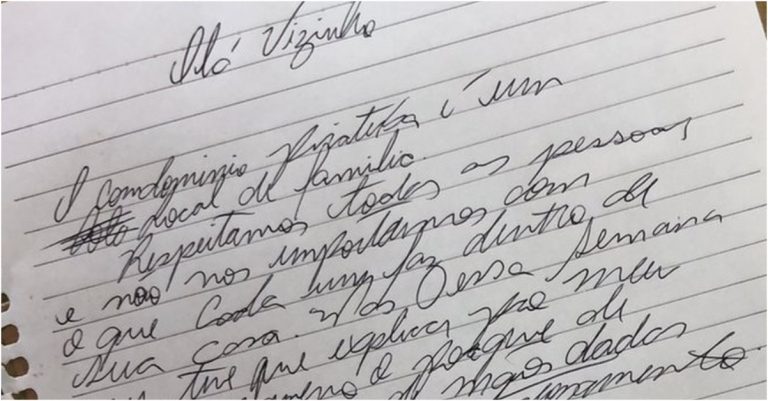 Alô Vizinho
O condominio Piratika é um
local de familia.
Respeitamos todas as pessoas
e não nos importamos com
o que cada um faz dentro de
sua casa. Mas essa semana
tive que explicar pro meu
o porque de
mãos dadas